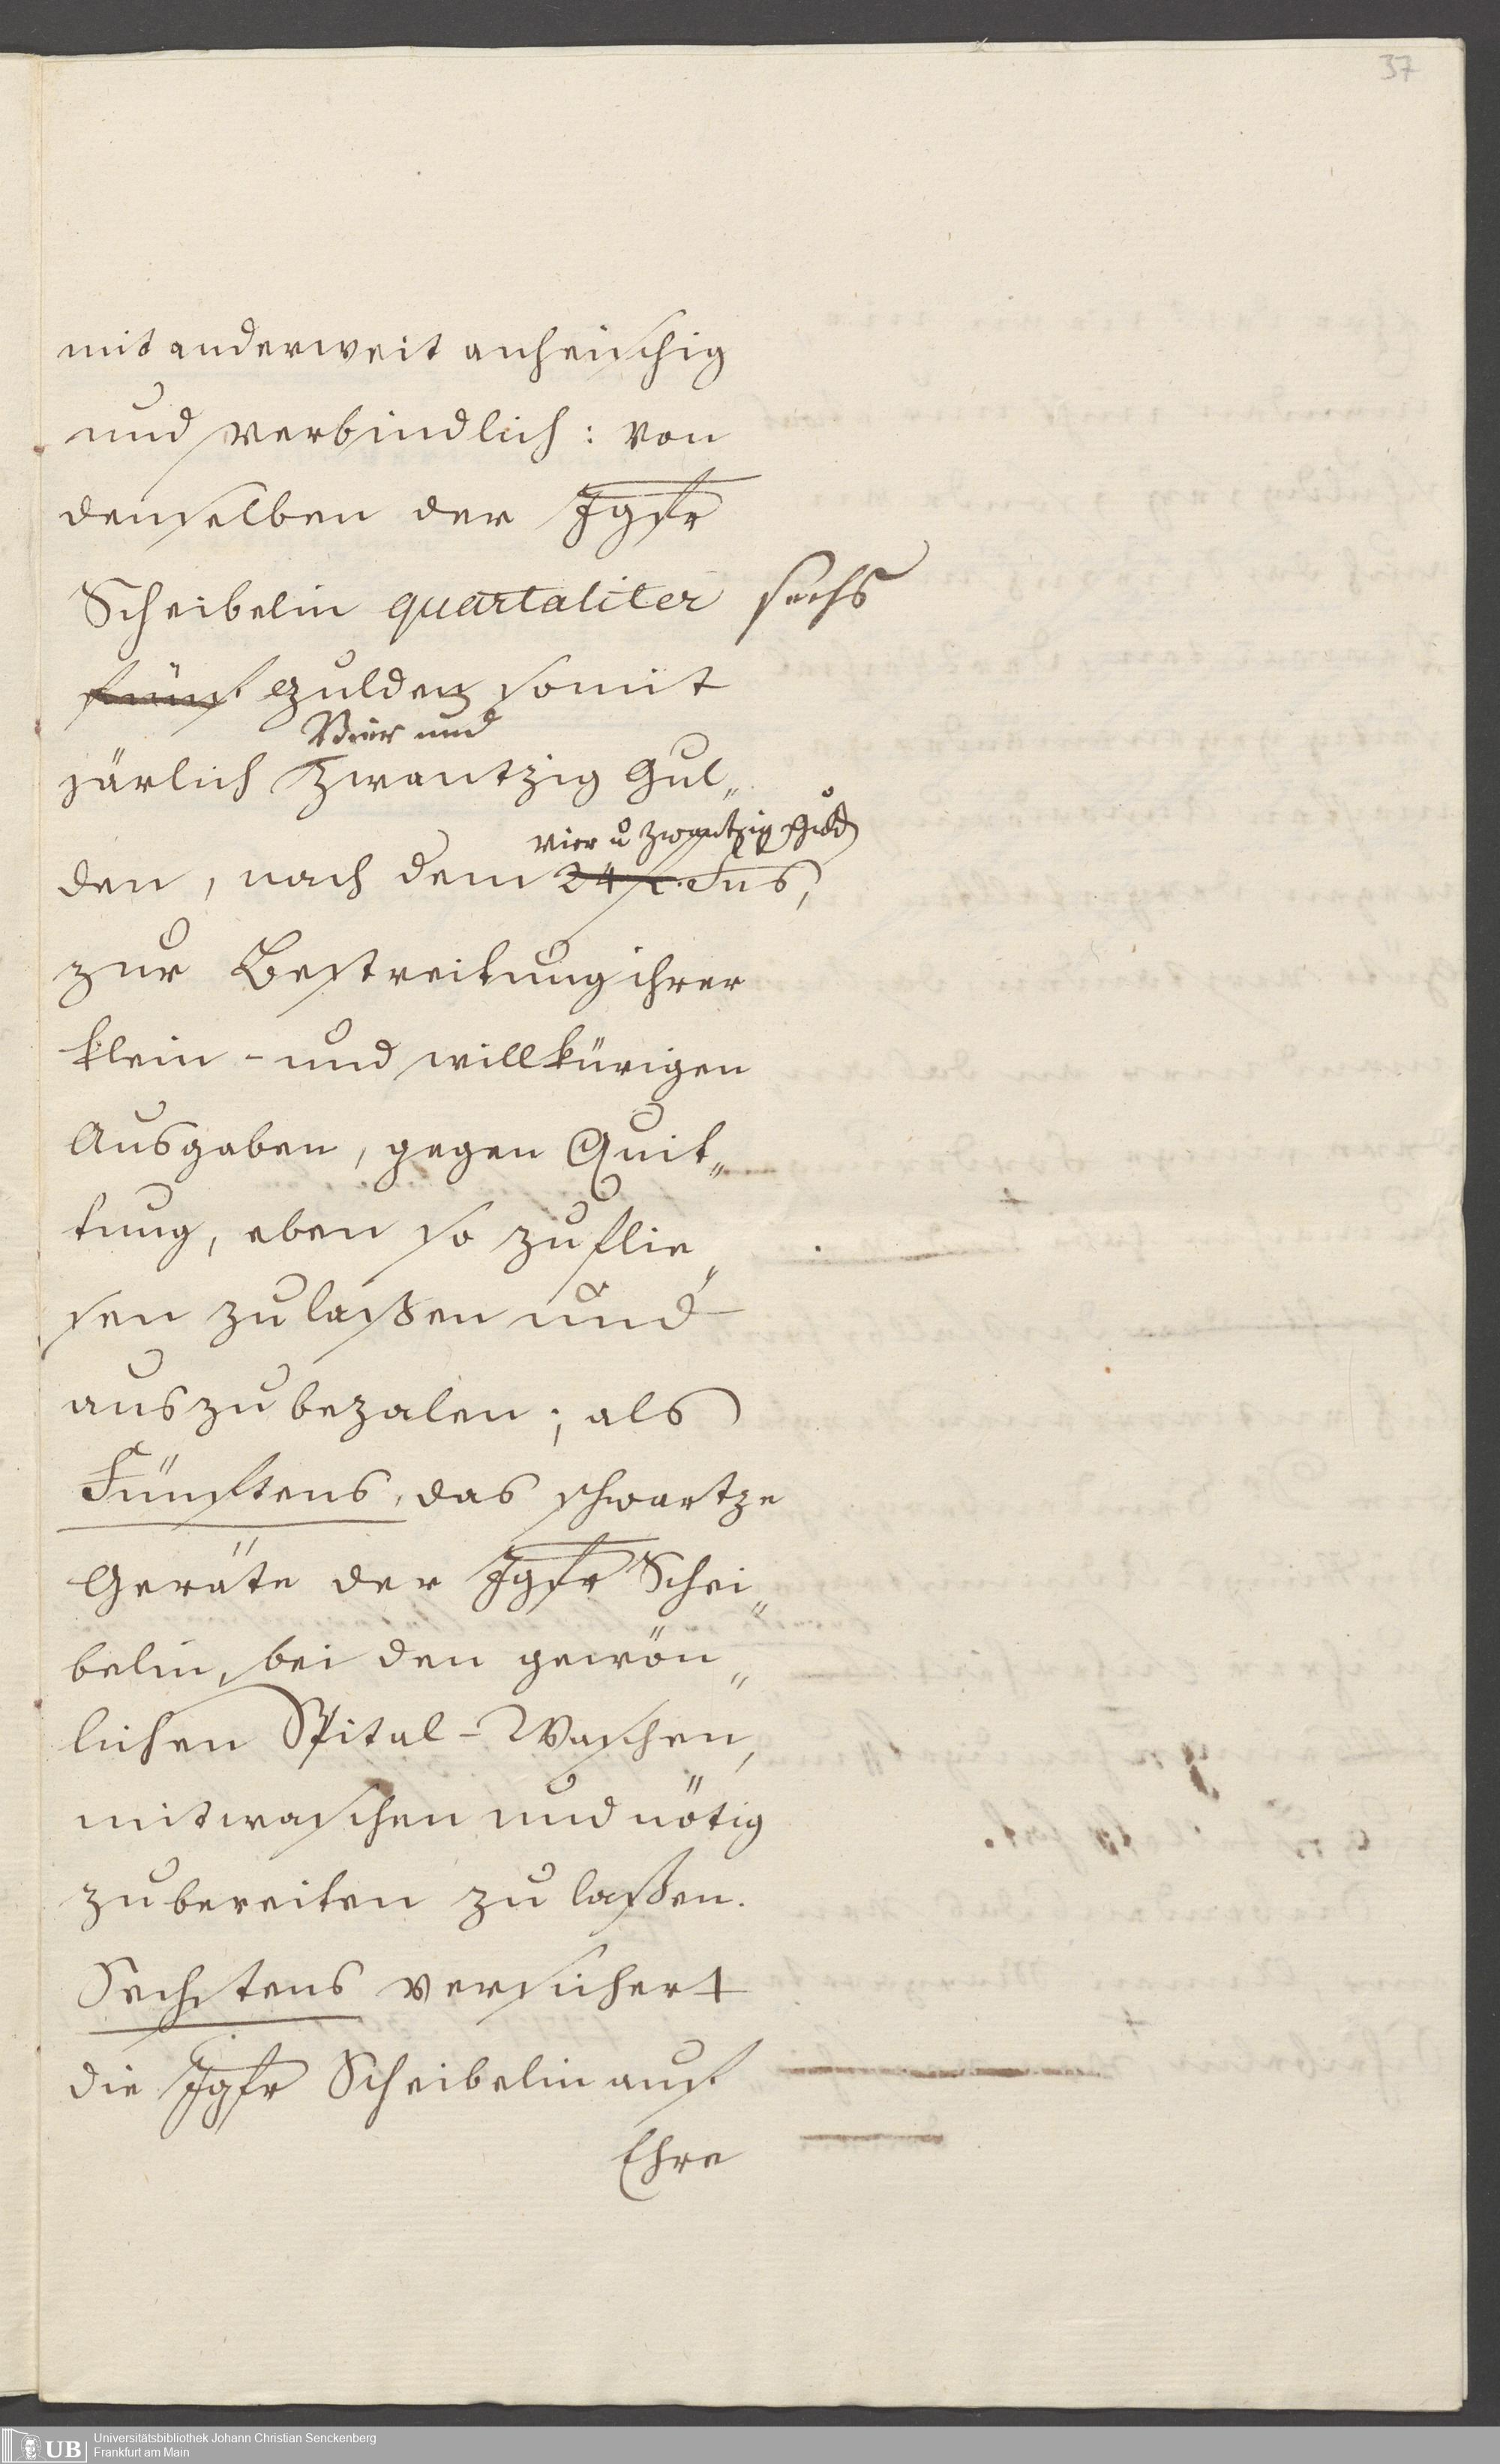 37
mit anderweit anheischig
und verbindlich: von
denselben der Jgfr
Scheibelin quartaliter sechs
fünf Gulden somit
Vier und
järlich Zwantzig Gul„
vier u zwantzig Guld
den, nach dem 24 f. Fus,
zur Bestreitung ihrer
klein- und willkürigen
Ausgaben, gegen Quit„
tung, eben so zuflie„
sen zulaßen und
auszubezalen; als
Fünftens, das schwartze
Geräte der Jgfr Schei„
belin, bei den gewön„
lichen Spital-Waschen,
mitwaschen und nötig
zubereiten zu laßen.
Sechstens versichert
die Jgfr Scheibelin auf
Ehre
UB
Universitätsbibliothek Johann Christian Senckenberg
Frankfurt am Main